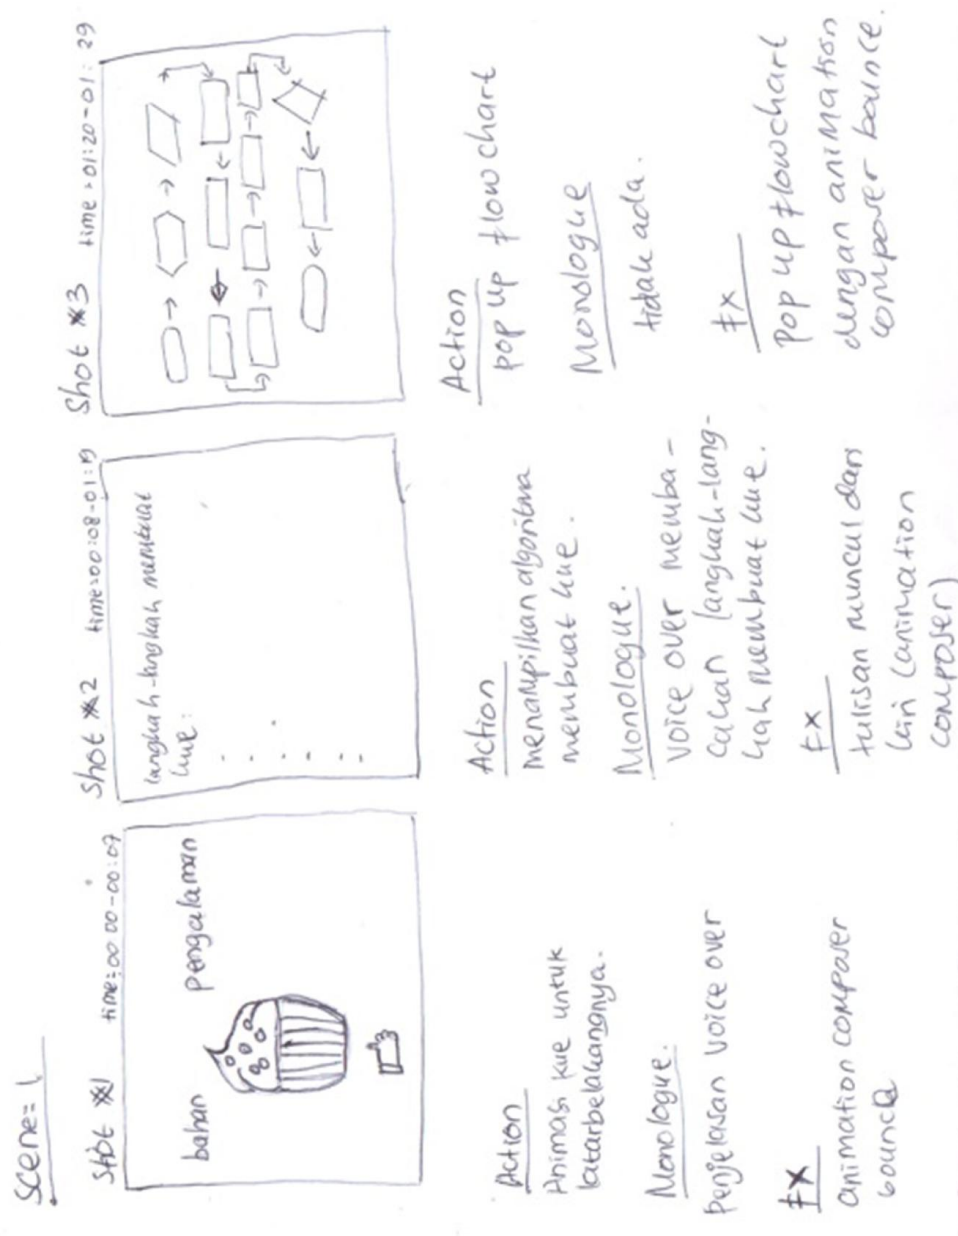 Scene= 1
Shot #1 time=00 00-00:07
bahan pengalaman
Action
Animasi kue untuk
latarbelakangnya.
Monologue.
Penjelasan voice over
FX
animation composer
bounce
Shot #2 time=00:08-01:19
langkah-langkah membuat
kue:
Action
menampilkan algoritma
membuat kue.
Monologue.
Voice over memba-
cakan langkah-lang-
kah membuat kue.
FX
tulisan muncul dari
kiri (animation
composer)
Shot #3 time=01:20-01:29
Action
pop up flowchart
Monologue
tidak ada.
FX
Pop up flowchart
dengan animation
composer bounce.